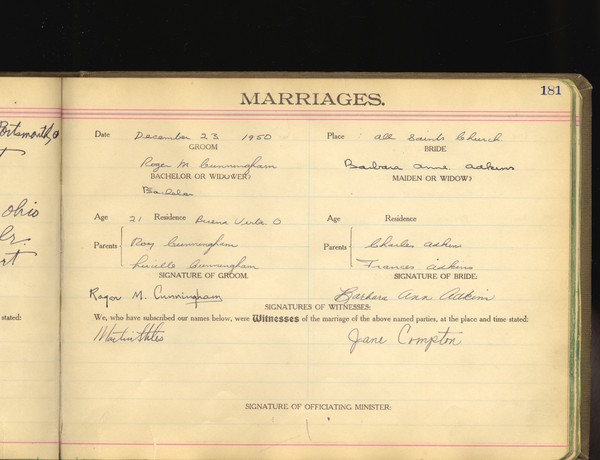 181
MARRIAGES.
Portsmouth, O
Date December 23 1950 Place All Saints Church
GROOM BRIDE
Roger M. Cunningham Barbara Anne Adkins
BACHELOR OR WIDOWER? MAIDEN OR WIDOW?
Bachelor
Age 21 Residence Buena Vista, O Age Residence
Ohio
Jr.
Parents Roy Cunningham Parents Charles Adkins
Lucille Cunningham Frances Adkins
SIGNATURE OF GROOM. SIGNATURE OF BRIDE:
Roger M. Cunningham Barbara Ann Adkins
SIGNATURES OF WITNESSES:
stated: We, who have subscribed our names below, were Witnesses of the marriage of the above named parties, at the place and time stated:
Martin Jane Compton
SIGNATURE OF OFFICIATING MINISTER: